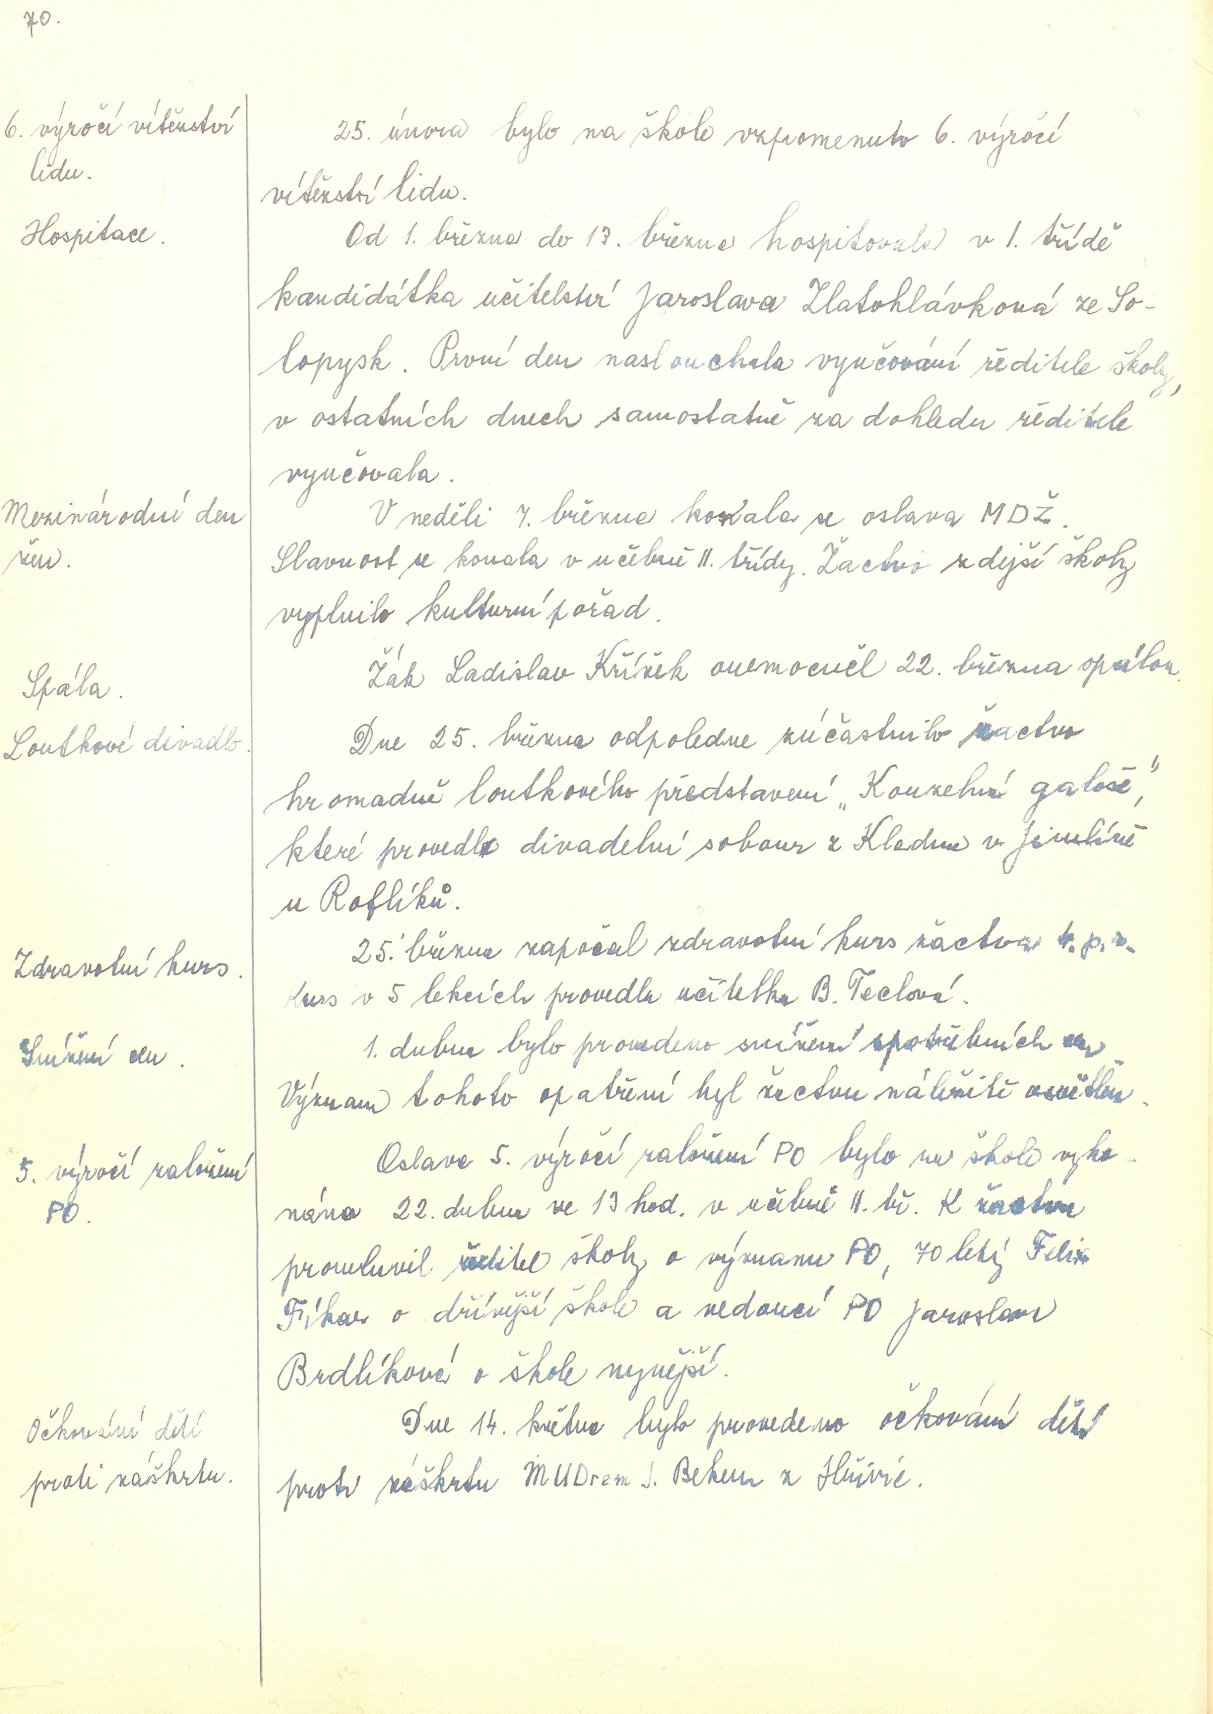 70.
6. výročí vítězství
lidu.
25. února bylo na škole vzpomenuto 6. výročí
vítězství lidu.
Hospitace.
Od 1. března do 13. března hospitovala v 1. třídě
kandidátka učitelství Jaroslava Zlatohlávková ze So-
lopysk. První den naslouchala vyučování ředitele školy,
v ostatních dnech samostatně za dohledu ředitele
vyučovala.
Mezinárodní den
žen.
V neděli 7. března konala se oslava MDŽ.
Slavnost se konala v učebně II. třídy. Žactvo zdejší školy
vyplnilo kulturní pořad.
Spála.
Žák Ladislav Křížek onemocněl 22. března spálou.
Loutkové divadlo.
Dne 25. března odpoledne zúčastnilo žactvo
hromadně loutkového představení „Kouzelné galoše",
které provedl divadelní soubor z Kladna v Jimlíně
u Roflíků.
Zdravotní kurs.
25. března započal zdravotní kurs žactva
kurs v 5 lekcích provedla učitelka B. Teclová.
Snížení cen.
1. dubna bylo provedeno snížení spotřebních cen
Význam tohoto opatření byl žactvu náležitě osvětlen.
5. výročí založení
PO.
Oslava 5. výročí založení PO bylo na škole vyko-
nána 22. dubna ve 13 hod. v učebně II. tř. K žactvu
promluvil ředitel školy o významu PO, 70 letý Felix
Fíkar o dřívější škole a vedoucí PO Jaroslava
Brdlíková o škole nynější.
Očkování dětí
proti záškrtu.
Dne 14. května bylo provedeno očkování dětí
proti záškrtu MUDrem J. Bekem z Hřivic.